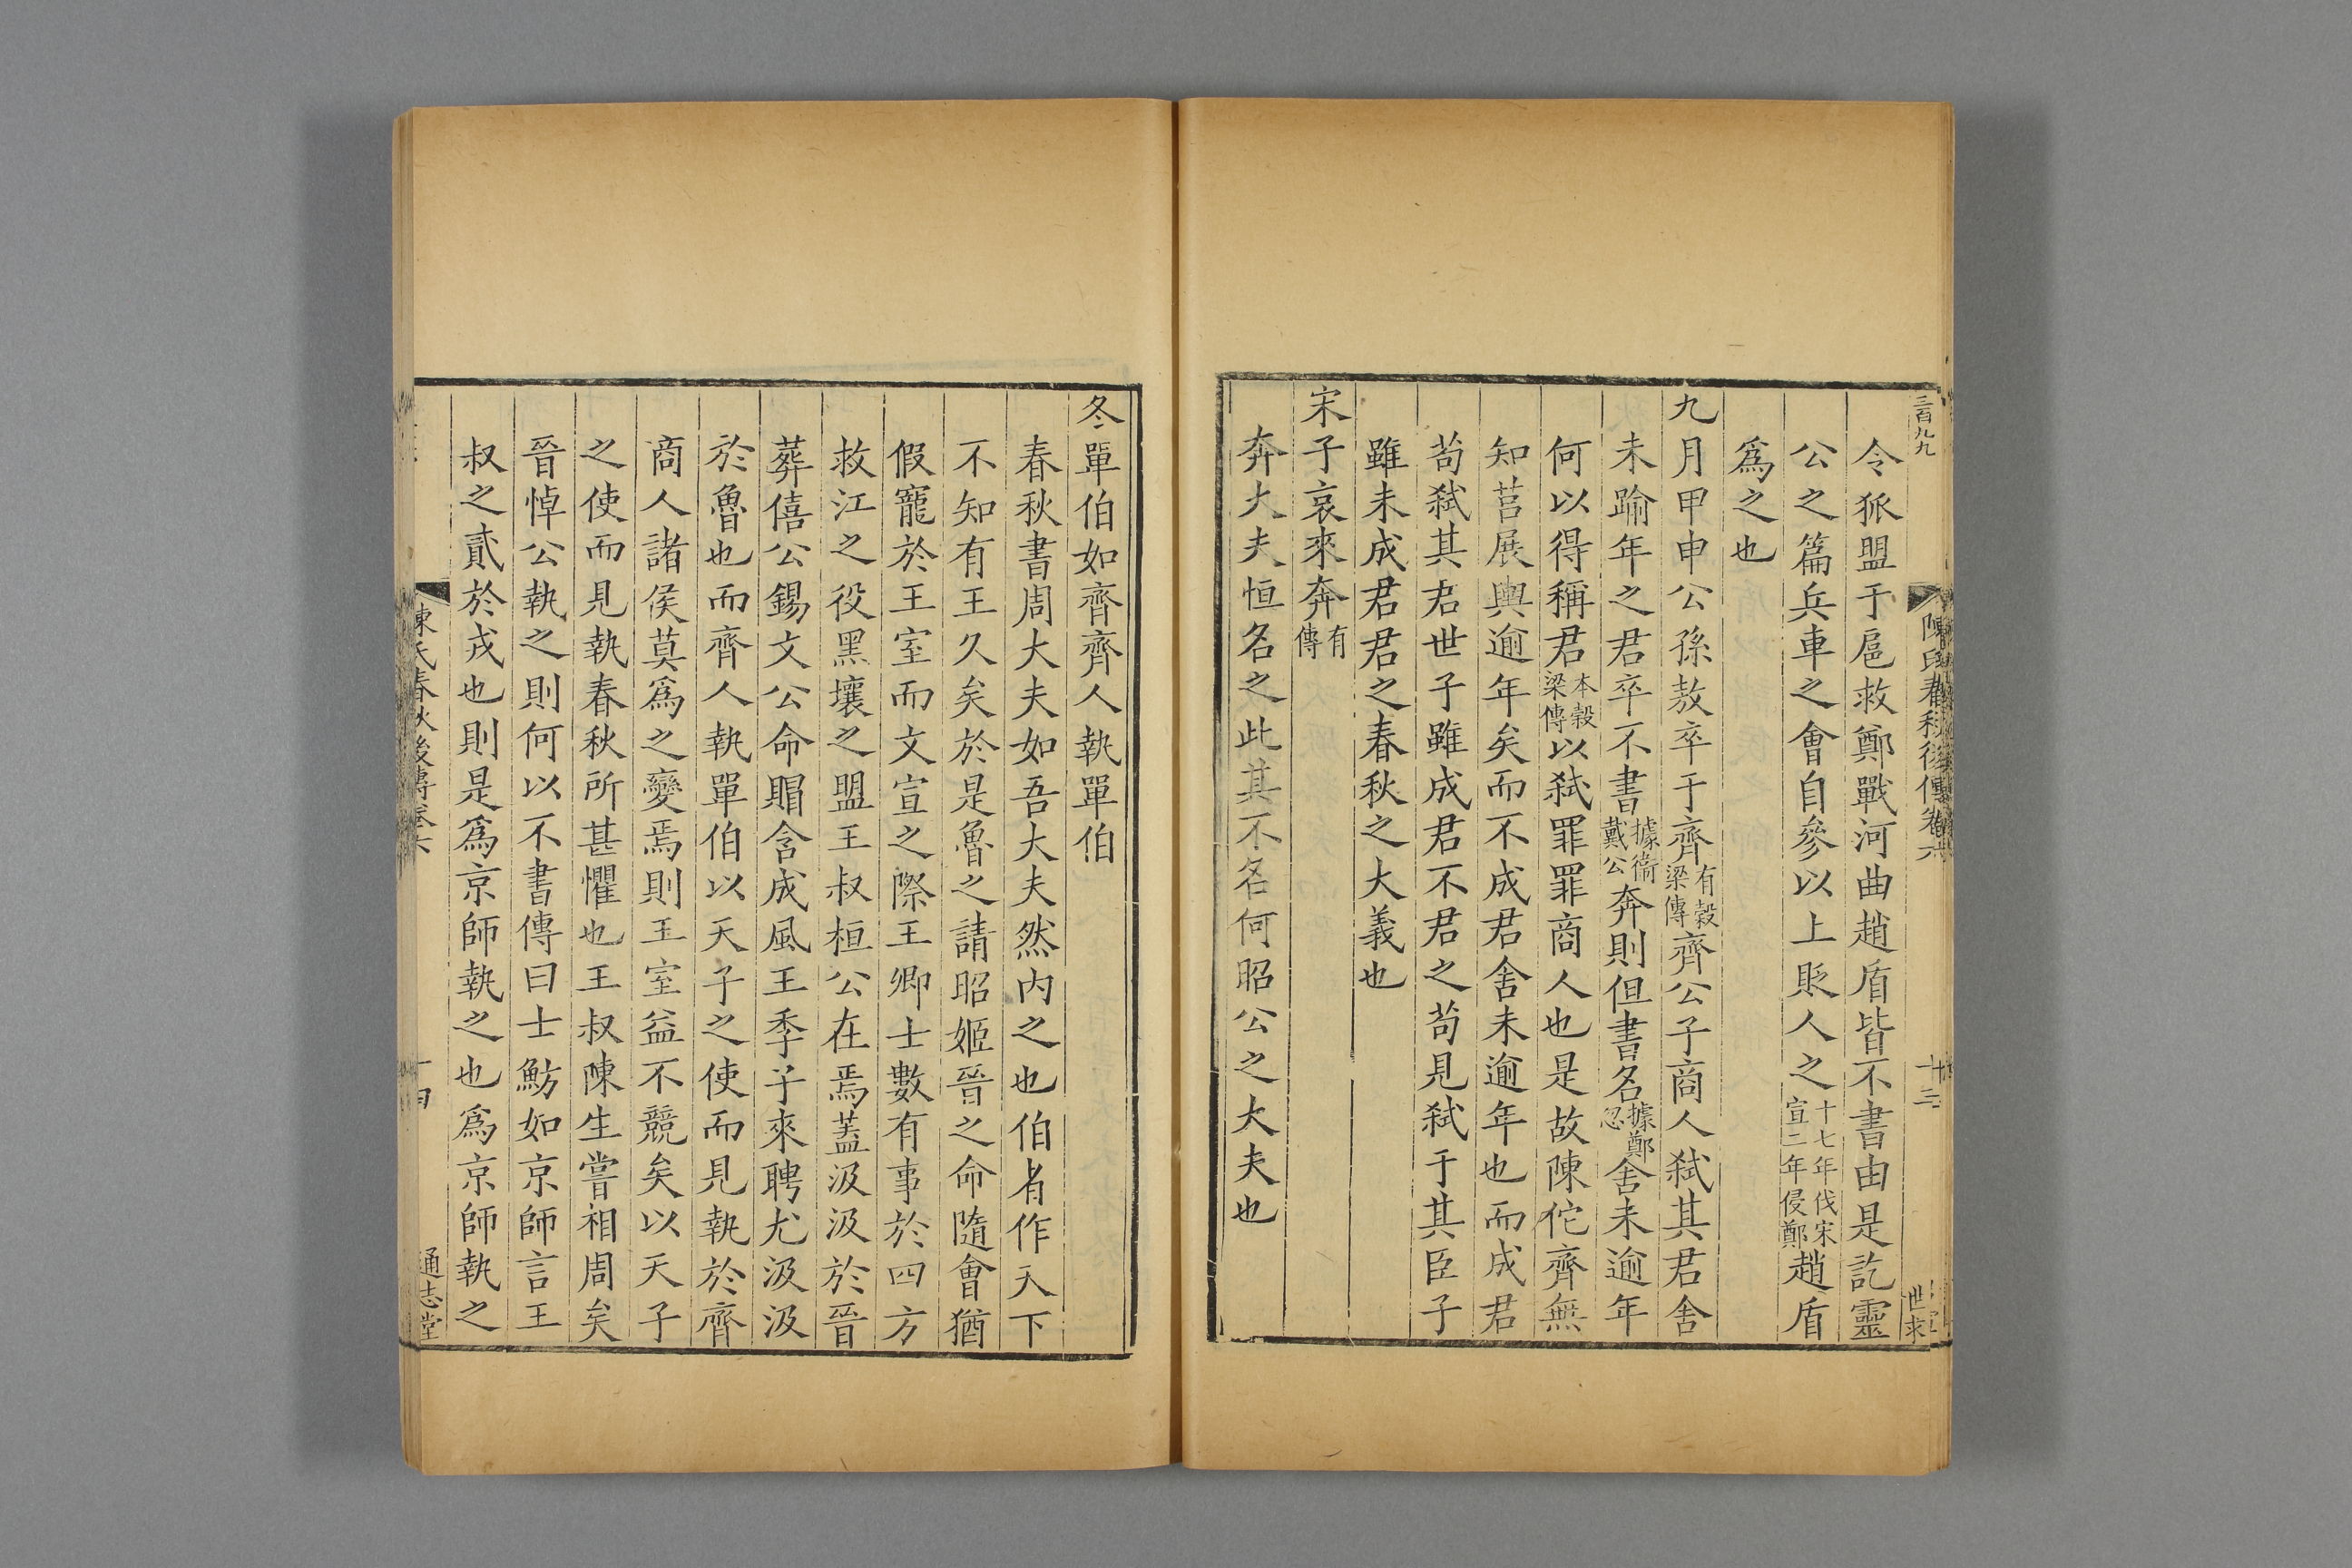 三百九九
陳氏春秋後傳卷六
十三
世求
令狐盟于扈救鄭戰河曲趙盾皆不書由是訖靈
公之篇兵車之會自參以上貶人之十七年伐宋宣二年侵鄭趙盾
爲之也
九月甲申公孫敖卒于齊有穀梁傳齊公子商人弑其君舍
未踰年之君卒不書據衞戴公奔則但書名據鄭忽舍未逾年
何以得稱君本穀梁傳以弑罪罪商人也是故陳佗齊無
知莒展輿逾年矣而不成君舍未逾年也而成君
苟弑其君世子雖成君不君之苟見弑于其臣子
雖未成君君之春秋之大義也
宋子哀來奔有傳
奔大夫恒名之此其不名何昭公之大夫也
冬單伯如齊齊人執單伯
春秋書周大夫如吾大夫然内之也伯者作天下
不知有王久矣於是魯之請昭姬晉之命隨會猶
假寵於王室而文宣之際王卿士數有事於四方
救江之役黑壤之盟王叔桓公在焉蓋汲汲於晉
葬僖公錫文公命賵含成風王季子來聘尤汲汲
於魯也而齊人執單伯以天子之使而見執於齊
商人諸侯莫爲之變焉則王室益不競矣以天子
之使而見執春秋所甚懼也王叔陳生嘗相周矣
晉悼公執之則何以不書傳曰士魴如京師言王
叔之貳於戎也則是爲京師執之也爲京師執之
陳氏春秋後傳卷六
十四
通志堂